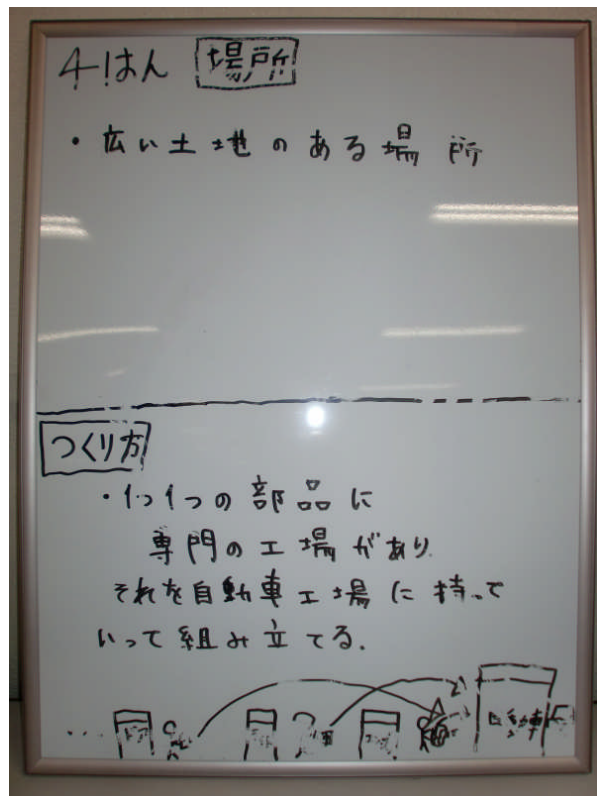 4はん 場所
・広い土地のある場所
つくり方
・1つ1つの部品に
専門の工場があり
それを自動車工場に持って
いって組み立てる.